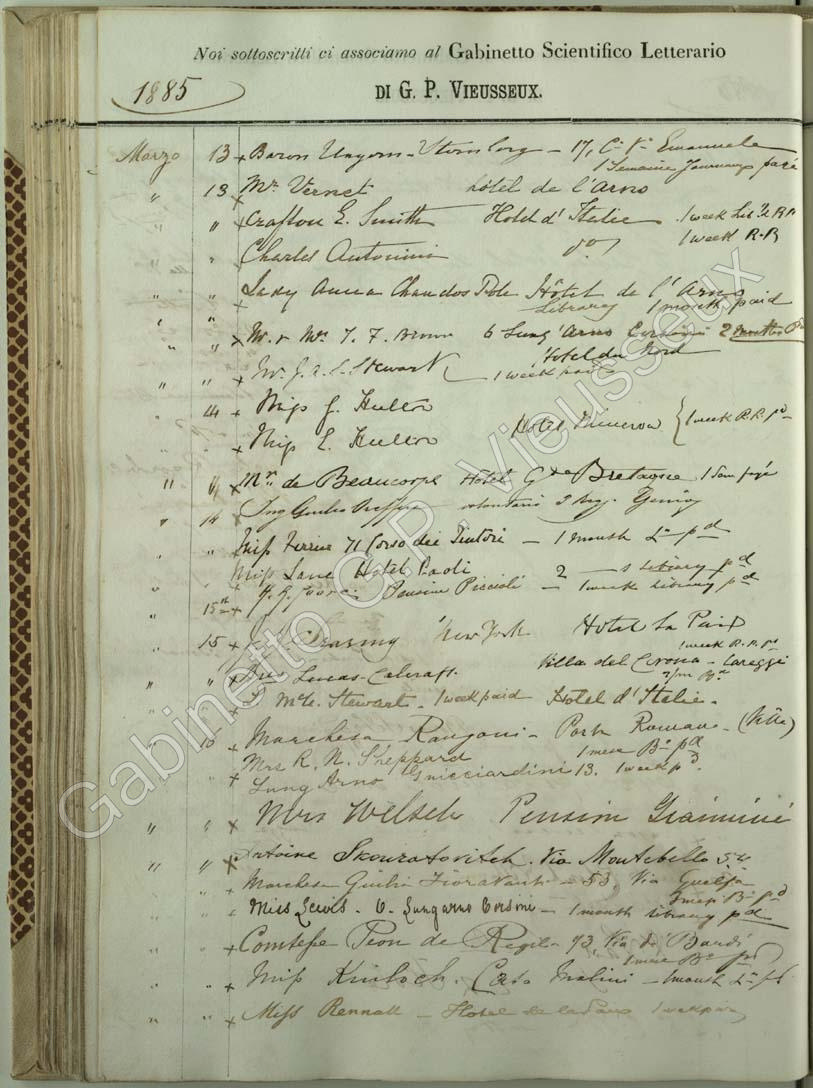 Noi sottoscritti ci associamo al Gabinetto Scientifico Letterario
1885
DI G. P. VIEUSSEUX.
Marzo 13 + Baron Ungern-Sternberg - 17, C. V. Emanuele
1 Semaine Journaux payé
" 13 + Mr. Vernet hôtel de l'Arno
" " + Crafton E. Smith Hotel d'Italie 1 week Lib. & R R
" + Charles Antonini do 1 week R.R
" " + Lady Anna Chandos Pole Hôtel de l'Arno
" " Library 1 month paid
" " + M. & Mrs T. F. Brown 6 Lung'Arno Corsini 2 months Pd
Hotel du Nord
" " + Mr. J. A. L. Stewart 1 week paid
14 + Miss J. Hulton
Hotel Minerva { 1 week R.R. pd
+ Miss E. Hulton
" " + Mr. de Beaucorps Hôtel Gde Bretagne 1 Sem payé
" 14 + Ing Giulio volontario Genio
" " Miss 71 Corso dei Tintori - 1 Month L- pd
" Miss Lane Hotel Paoli - 2 - s Library pd
" 15th + Pension Piccioli - 1 week library pd
15 + New York Hotel La Paix
1 week R.R. pd
" " + Lucas-Calcraft. Villa del Corona - Careggi
" " + McL. Stewart. 1 week paid Hotel d'Italie.
" 16 + Marchesa Rangoni - Porta Romana - (Villa)
1 mese Bn pd
Mrs R. N. Sheppard
" + Lung Arno Guicciardini 13. 1 week pd
" " + Mrs Welsch Pension Giannini
" " + Antoine Skouratovitch. Via Montebello 54
" Marchesa Giulia Fioravanti - 53, Via Guelfa
mesi Bn pd
" Miss Lewis. 6. Lungarno Corsini - 1 month library pd
" + Comtesse Peon de Regil - 42 Via de' Bardi
1 mese Bn pd
" " + Miss Kinloch. Casa Molini - 1 month Ln pd
" " + Miss Rennall - Hotel de la Paix 1 wk paid
Gabinetto G.P. Vieusseux